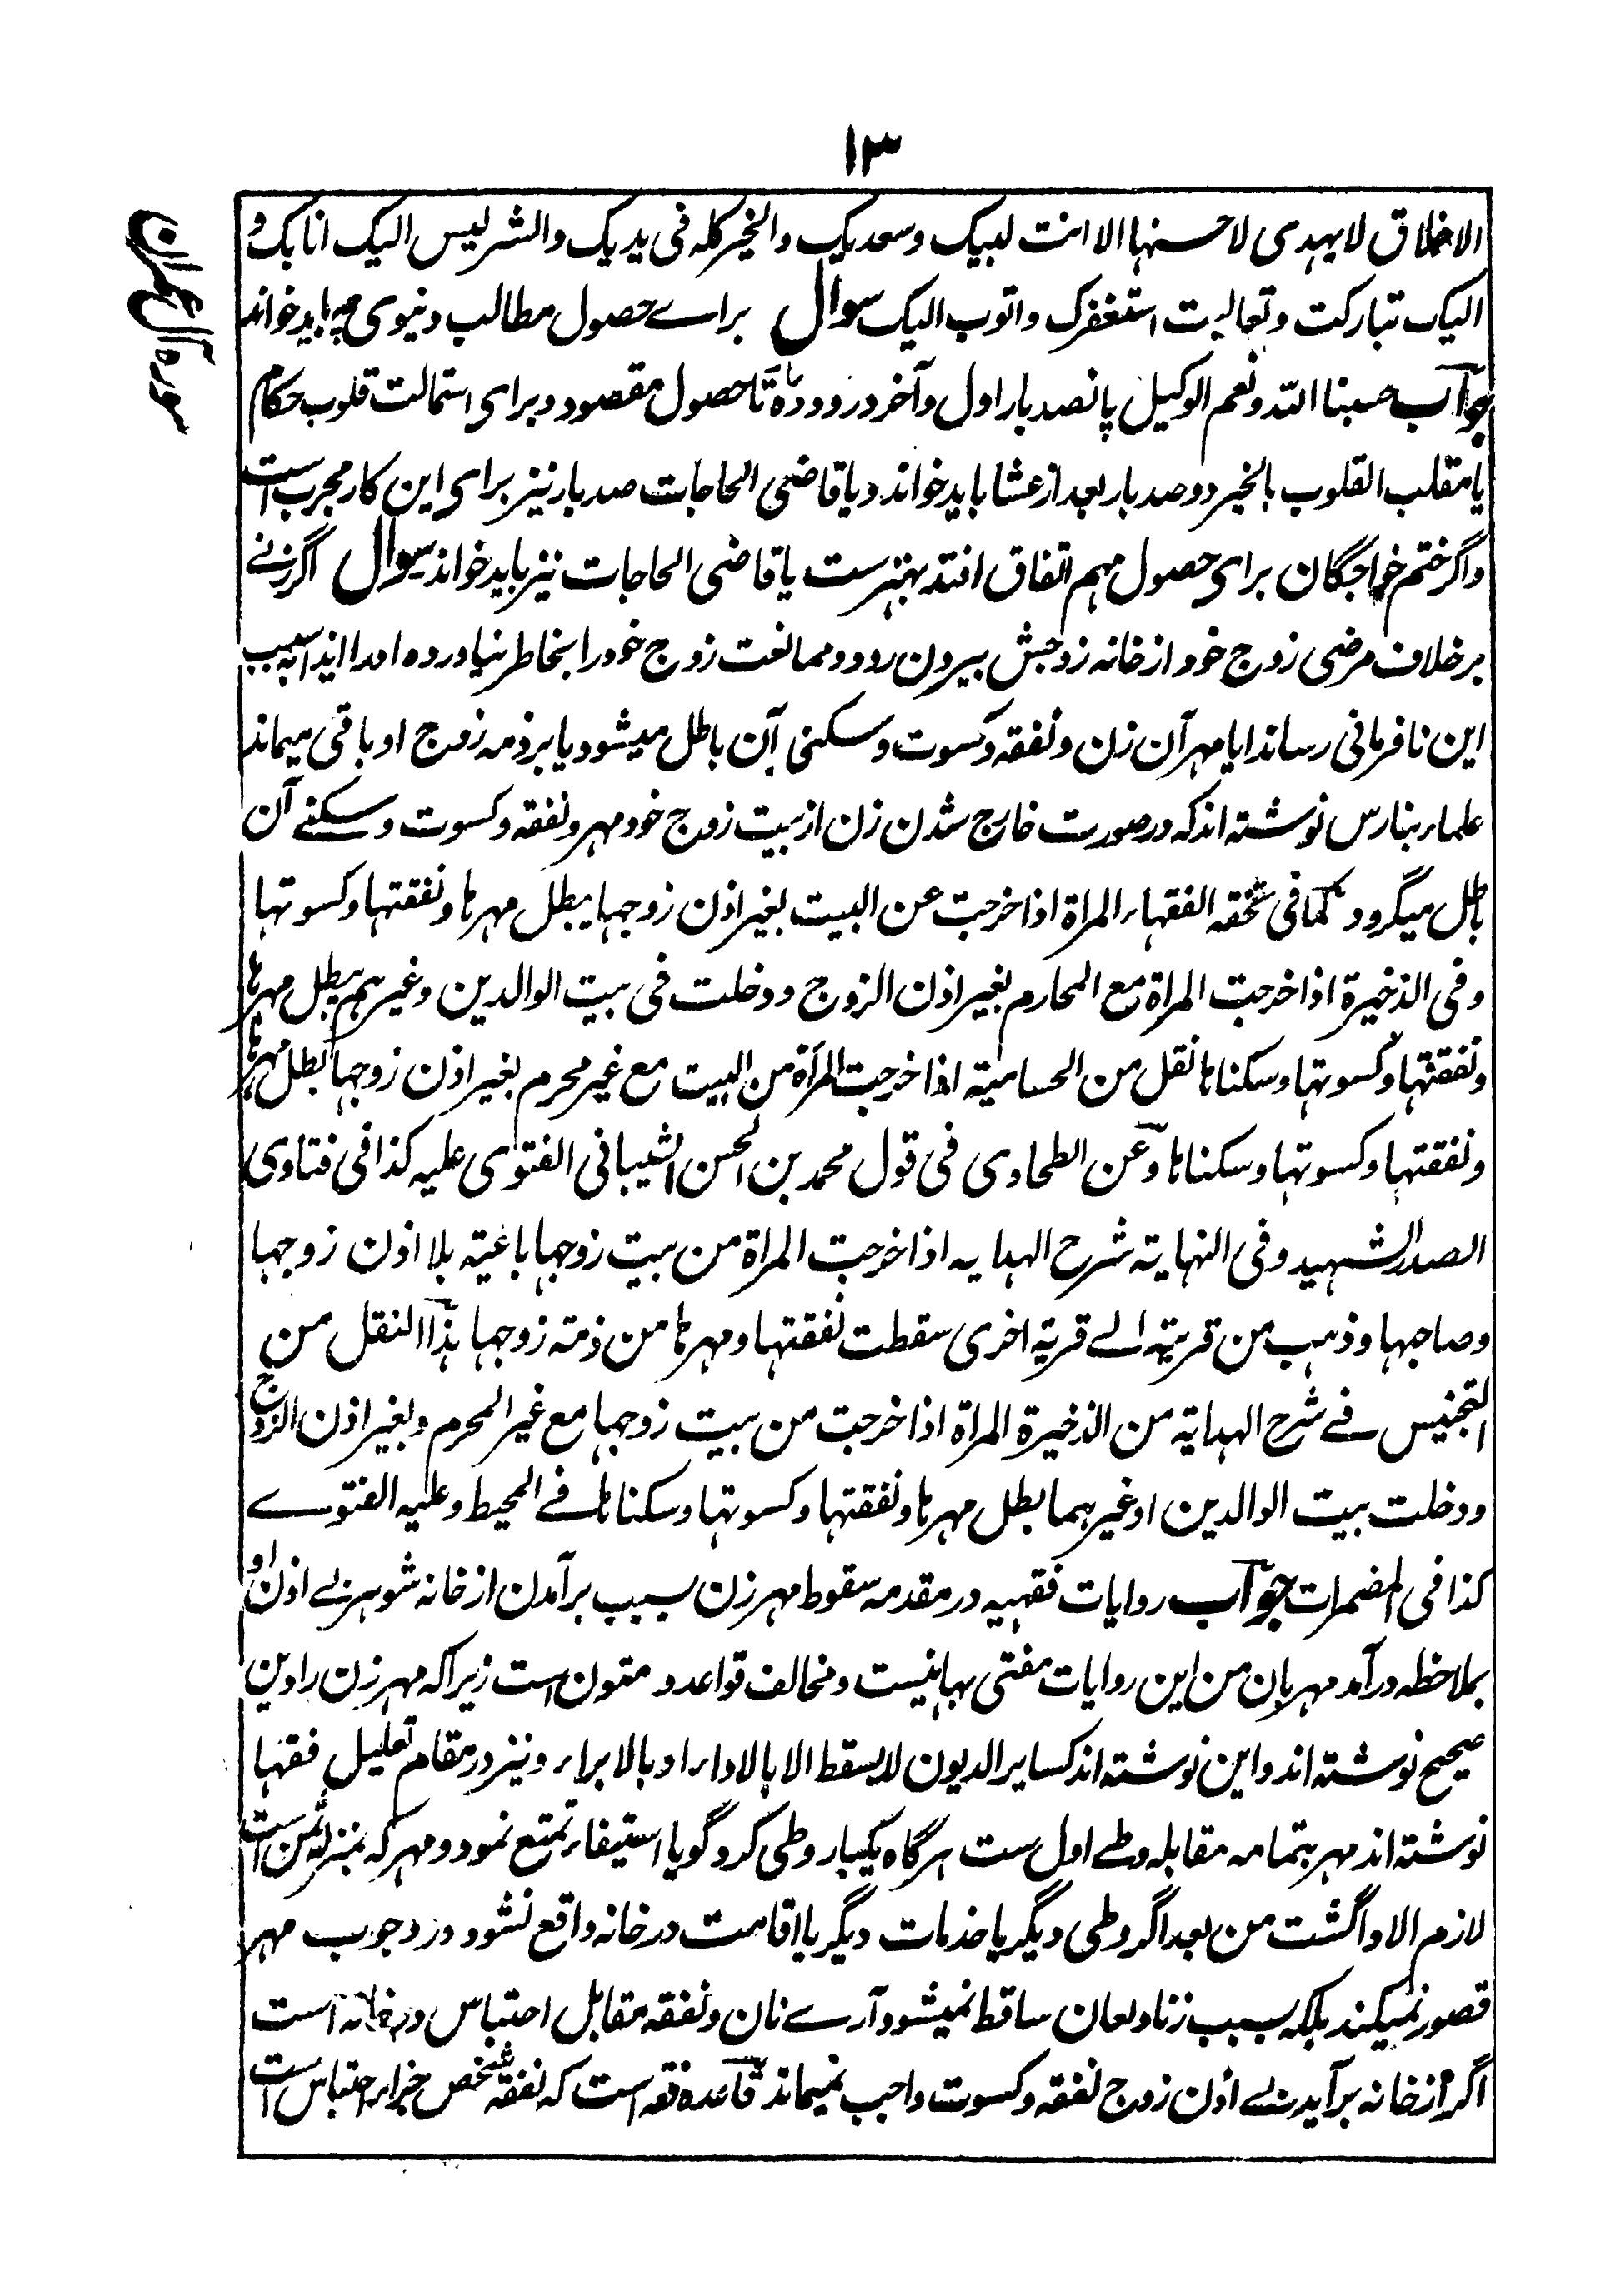 ۱۳
سوره آل عمران
الاخلاق لا یهدی لاحسنها الا انت لبیک وسعدیک والخیر کله فی یدیک والشر لیس الیک انا بک و
الیک تبارکت وتعالیت استغفرک واتوب الیک سوال براے حصول مطالب دنیوی چه باید خواند
جواب حسبنا الله ونعم الوکیل پانصد بار اول وآخر درود ده تا حصول مقصود وبرای استمالت قلوب حکام
یا مقلب القلوب بالخیر دو صد بار بعد از عشا باید خواند ویا قاضی الحاجات صد بار نیز برای این کار مجرب است
واگر ختم خواجگان برای حصول مهم اتفاق افتد بهتر ست یا قاضی الحاجات نیز باید خواند سوال اگر زنے
بر خلاف مرضی زوج خود از خانه زوجش بیرون رود وممانعت زوج خود را بخاطر نیاورده اورا ایذا بسبب
این نافرمانی رساند ایا مهر آن زن ونفقه وکسوت وسکنی آن باطل میشود یا بر ذمه زوج او باقی میماند
علماء بنارس نوشته اند که در صورت خارج شدن زن از بیت زوج خود مهر ونفقه وکسوت وسکنے آن
باطل میگردد کما فی تحفه الفقهاء المراة اذا خرجت عن البیت بغیر اذن زوجها یبطل مهرها ونفقتها وکسوتها
وفی الذخیرة اذا خرجت المراة مع المحارم بغیر اذن الزوج ودخلت فی بیت الوالدین وغیرهم یبطل مهرها
ونفقتها وکسوتها وسکناها نقل من الحسامیة اذا خرجت المرأة من البیت مع غیر محرم بغیر اذن زوجها بطل مهرها
ونفقتها وکسوتها وسکناها وعن الطحاوی فی قول محمد بن الحسن الشیبانی الفتوی علیه کذا فی فتاوی
الصدر الشهید وفی النهایة شرح الهدایه اذا خرجت المراة من بیت زوجها باغیة بلا اذن زوجها
وصاحبها وذهب من قریة الے قریة اخری سقطت نفقتها ومهرها من ذمته زوجها هذا النقل من
التجنیس فے شرح الهدایة من الذخیرة المراة اذا خرجت من بیت زوجها مع غیر المحرم وبغیر اذن الزوج
ودخلت بیت الوالدین اوغیرهما بطل مهرها ونفقتها وکسوتها وسکناها فے المحیط وعلیه الفتوے
کذا فی المضمرات جواب روایات فقهیه در مقدمه سقوط مهر زن بسبب برآمدن از خانه شوهر بے اذن او
بملاحظه درآمد مهربان من این روایات مفتی بها نیست ومخالف قواعد و متون است زیرا که مهر زن را دین
صحیح نوشته اند واین نوشته اند کسایر الدیون لا یسقط الا بالاداء او بالابراء ونیز در مقام تعلیل فقها
نوشته اند مهر بتمامه مقابله وطے اول ست هرگاه یکبار وطی کرد گویا استیفاء تمتع نمود ومهر که بمنزله ثمن است
لازم الادا گشت من بعد اگر وطی دیگر یا خدمات دیگر یا اقامت در خانه واقع نشود در وجوب مهر
قصور نمیکند بلکه بسبب زنا ولعان ساقط نمیشود آرے نان ونفقه مقابل احتباس در خانه است
اگر از خانه برآید بے اذن زوج نفقه وکسوت واجب نمیماند قاعده فقه است که نفقه شخص جزاء احتباس است